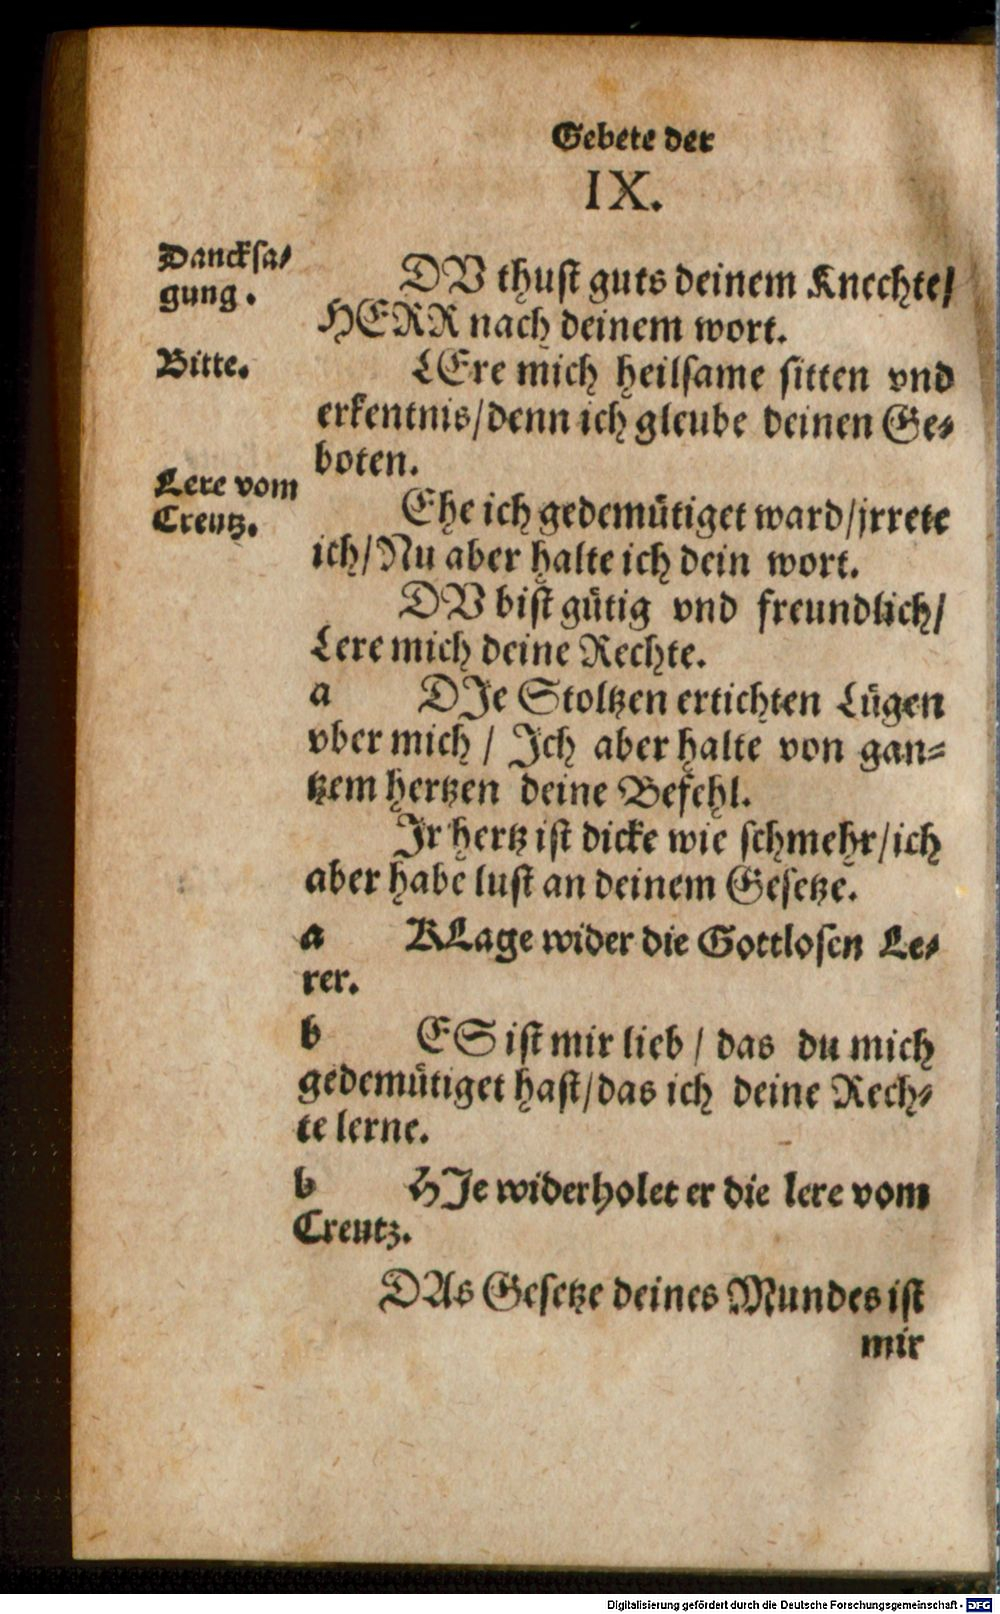 Gebete der
IX.
Danckſa⸗
gung.
DV thuſt guts deinem Knechte/
HERR nach deinem wort.
Bitte.
LEre mich heilſame ſitten vnd
erkentnis/denn ich gleube deinen Ge⸗
boten.
Lere vom
Creutz.
Ehe ich gedemuͤtiget ward/jrrete
ich/Nu aber halte ich dein wort.
DV biſt guͤtig vnd freundlich/
Lere mich deine Rechte.
a DIe Stoltzen ertichten Luͤgen
vber mich / Ich aber halte von gan⸗
tzem hertzen deine Befehl.
Ir hertz iſt dicke wie ſchmehr/ich
aber habe luſt an deinem Geſetze.
a KLage wider die Gottloſen Le⸗
rer.
b ES iſt mir lieb / das du mich
gedemuͤtiget haſt/das ich deine Rech⸗
te lerne.
b HIe widerholet er die lere vom
Creutz.
DAs Geſetze deines Mundes iſt
mir
Digitalisierung gefördert durch die Deutsche Forschungsgemeinschaft - DFG